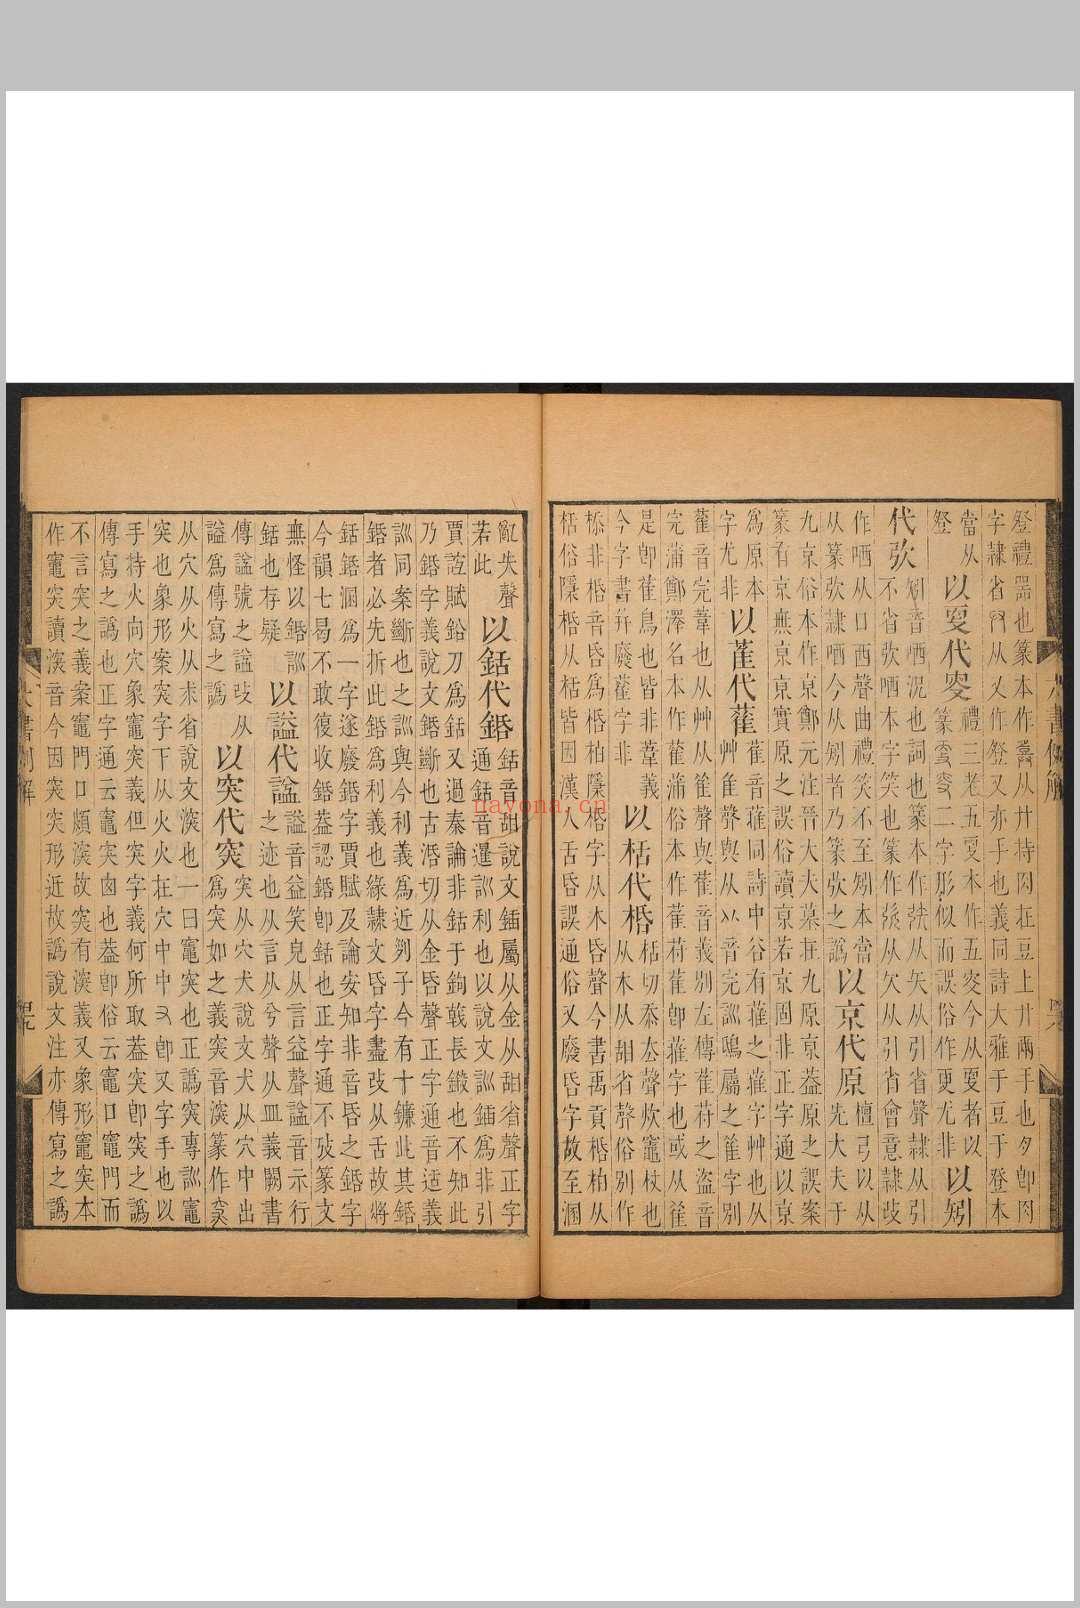 登禮器也篆本作從廾持肉在豆上廾兩手也夕卽肉
字隸省从又作登又亦手也義同詩大雅于豆于登本
當从
登
以叟代叜
禮三老五叟本作五叜今从叟者以
篆二字形似而誤俗作更尤非
以矧
代弞
矧音哂況也詞也篆本作矤从矢从引省聲隸从引
不省弞哂本字笑也篆作弞从欠从引省會意隸或
作哂从口西聲曲禮笑不至矧本當
从篆弞隸哂今从矧者乃篆弞之譌
以京代原
檀弓以从
先大夫于
九京俗本作京鄭元注晉大夫墓在九原京葢原之誤案
篆有京無京京實原之誤俗讀京若京固非正字通以京
爲原本
字尤非
以萑代雈
雈音萑同詩中谷有蓷之蓷字艸也从
艸隹聲與从音完訓鴟屬之雈字別
雚音完葦也从艸从雈聲與雚音義別左傳萑苻之盜音
完蒲鄭澤名本作萑蒲俗本作萑苻萑卽蓷字也或从雈
是卽雚鳥也皆非葦義
今字書幷廢雚字非
以栝代楛
栝切忝去聲炊竈杖也
从木从甜省聲俗別作
㮇非楛音昏爲楛柏隱楛字从木昏聲今書禹貢楛柏从
栝俗隱楛从栝皆因漢人舌昏誤通俗又廢昏字故至溷
亂失聲
若此
以銛代鍲
銛音甜說文鍤屬从金从甜省聲正字
通銛音暹訓利也以說文訓鍤爲非引
賈誼賦鉛刀爲銛又過秦論非銛于鉤戟長鎩也不知此
乃鍲字義說文鍲斷也古活切从金昏聲正字通音适義
訓同案斷也之訓與今利義爲近列子今有十鐮此其鍲
鍲者必先折此鍲爲利義也緣隸文昏字盡改从舌故將
銛鍲溷爲一字遂廢鍲字賈賦及論安知非音昏之鍲字
今韻七曷不敢復收鍲葢認鍲卽銛也正字通不攷篆文
無怪以鍲訓
銛也存疑
以謚代諡
謚音益笑皃从言益聲諡音示行
之迹也从言从兮聲从皿義闕書
傳諡號之諡或从
謚爲傳寫之譌
以突代𥥍
突从穴犬說文犬从穴中出
爲突如之義突音湥篆作𥥍
从穴从火从求省說文湥也一曰竈突也正譌突專訓竈
突也象形案突字下从火火在穴中中又卽又字手也以
手持火向穴象竈突義但突字義何所取葢突卽突之譌
傳寫之譌也正字通云竈突囪也葢卽俗云竈口竈門而
不言突之義案竈門口頗湥故突有湥義又象形竈突本
作竈突讀湥音今因突突形近故譌說文注亦傳寫之譌
六書例解
nayona.cn